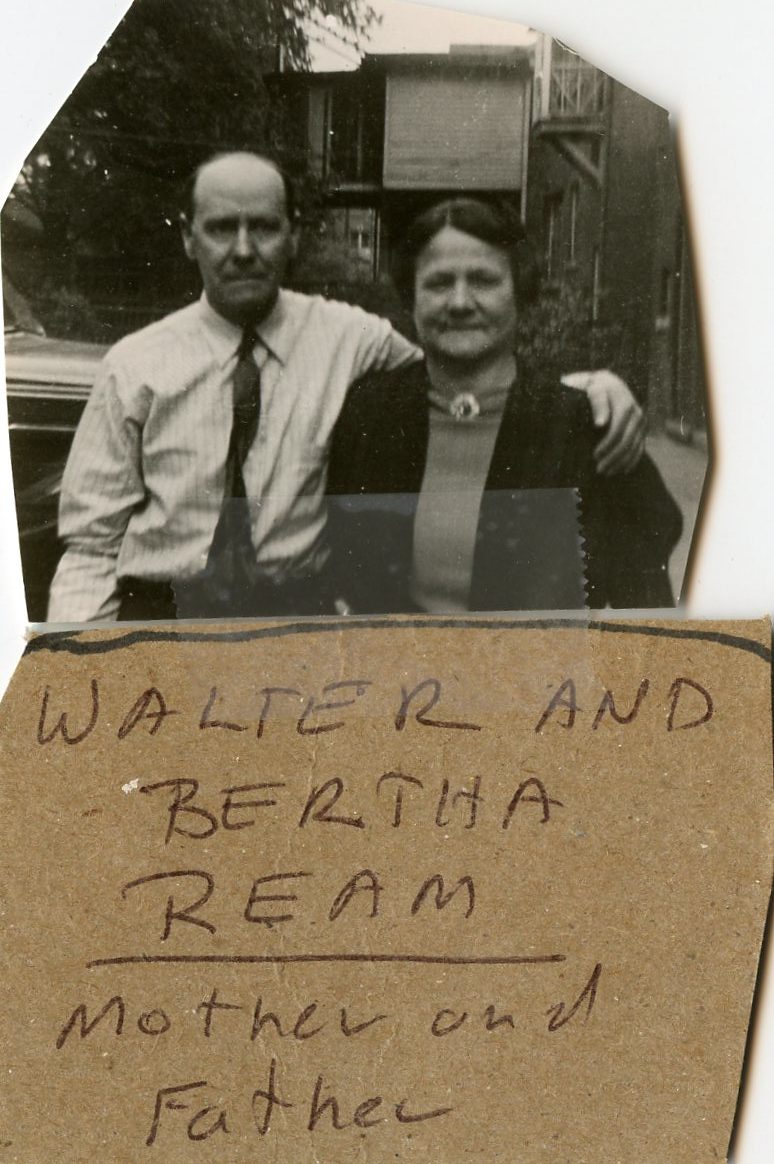 WALTER AND
BERTHA
REAM
Mother and
Father